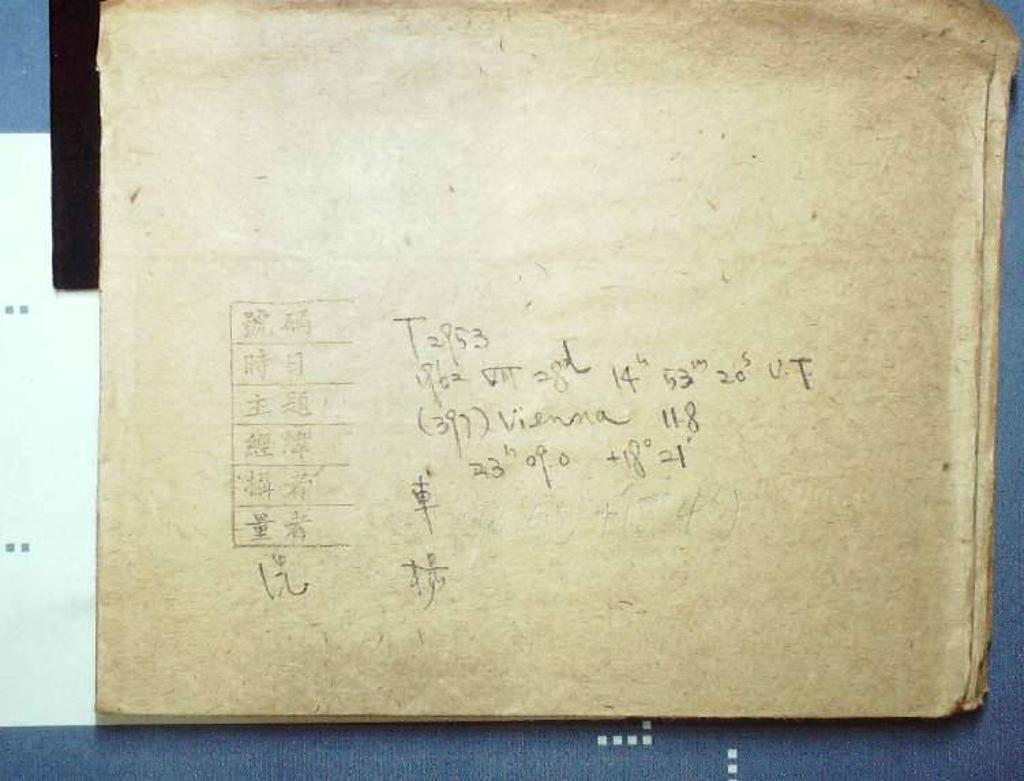 號碼 T2953
時日 1962 VIII 28nd 14h 53m 20s U.T
主題 (397) Vienna 11.8
經緯 23h 09.0 +18° 21'
攝者 車
量者
洗 楊